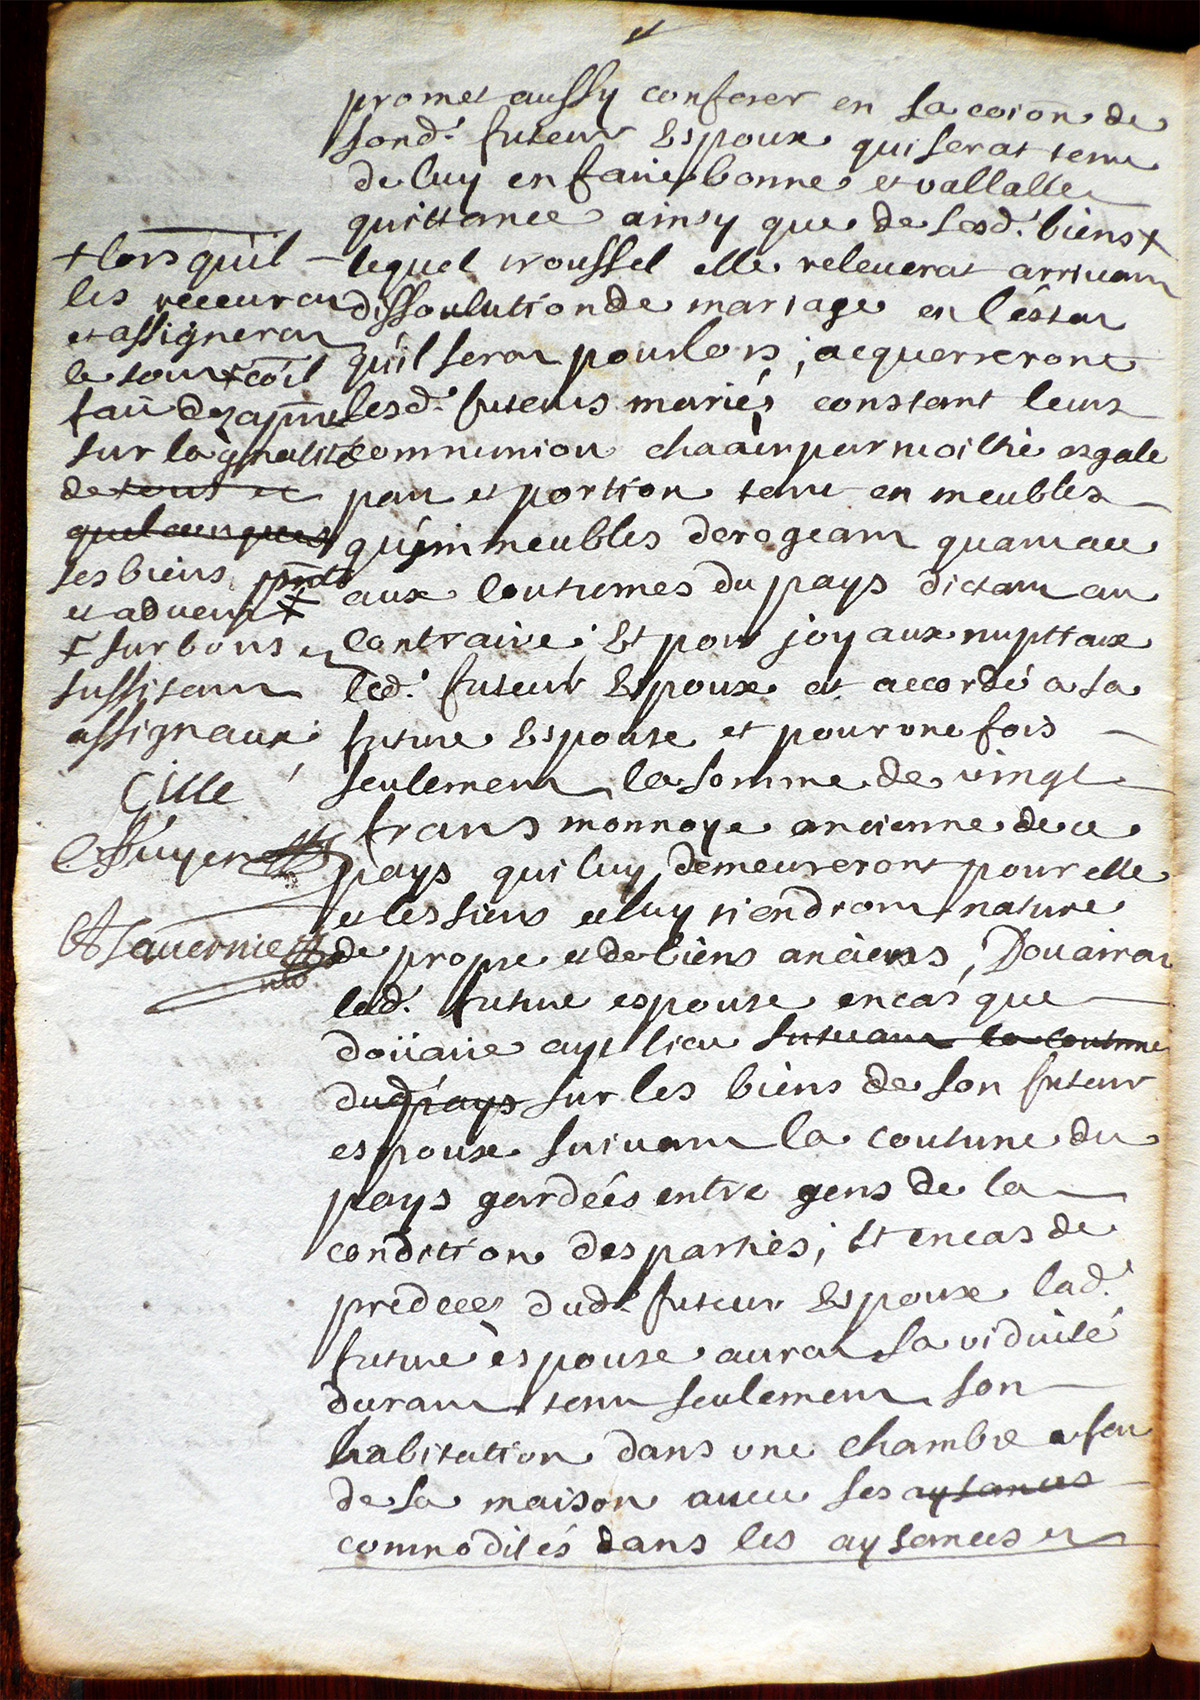 promet aussy conferer en la coion de
sond. futeur Espoux qui serat tenu
de luy en faire bonne et vallable
quittance ainsy que de sesd. biens +
lequel troussel elle releverat arrivant
dissoulution de mariage en l'estat
qu'il serat pour lors ; acquerreront
lesd. futeurs mariés constant leur
communion chacun par moithié esgale
part et portion tant en meubles
qu'jmmeubles derogeant quant a ce
aux coutumes du pays dictant au
contraire ; Et pour joyaux nuptiaux
led. futeur Espoux at accordé a sa
future Espouse et pour une fois
seulement la somme de vingt
frans monnoye ancienne de ce
pays qui luy demeureront pour elle
et les siens et luy tiendront nature
de propre et de biens anciens, Douairat
lad. future espouse en cas que
doüaire ayt lieu suivant la coutume
dud pays sur les biens de son futeur
espoux suivant la coutume du
pays gardées entre gens de la
condition des parties ; Et en cas de
predeces dud. futeur Espoux lad.
future èspouse aurat sa viduité
durant tant seulement son
habitation dans une chambre a feu
de la maison avec ses aysances
commodités dans les aysances et
+ lors qu'il
les recevrat
et assignerat
le tout + co'il
fait dez a pnt
sur la gnalité
de tout et
quelconques
ses biens pnts
et advenir ‡
‡ sur bons et
suffisant
assignaux
Cille